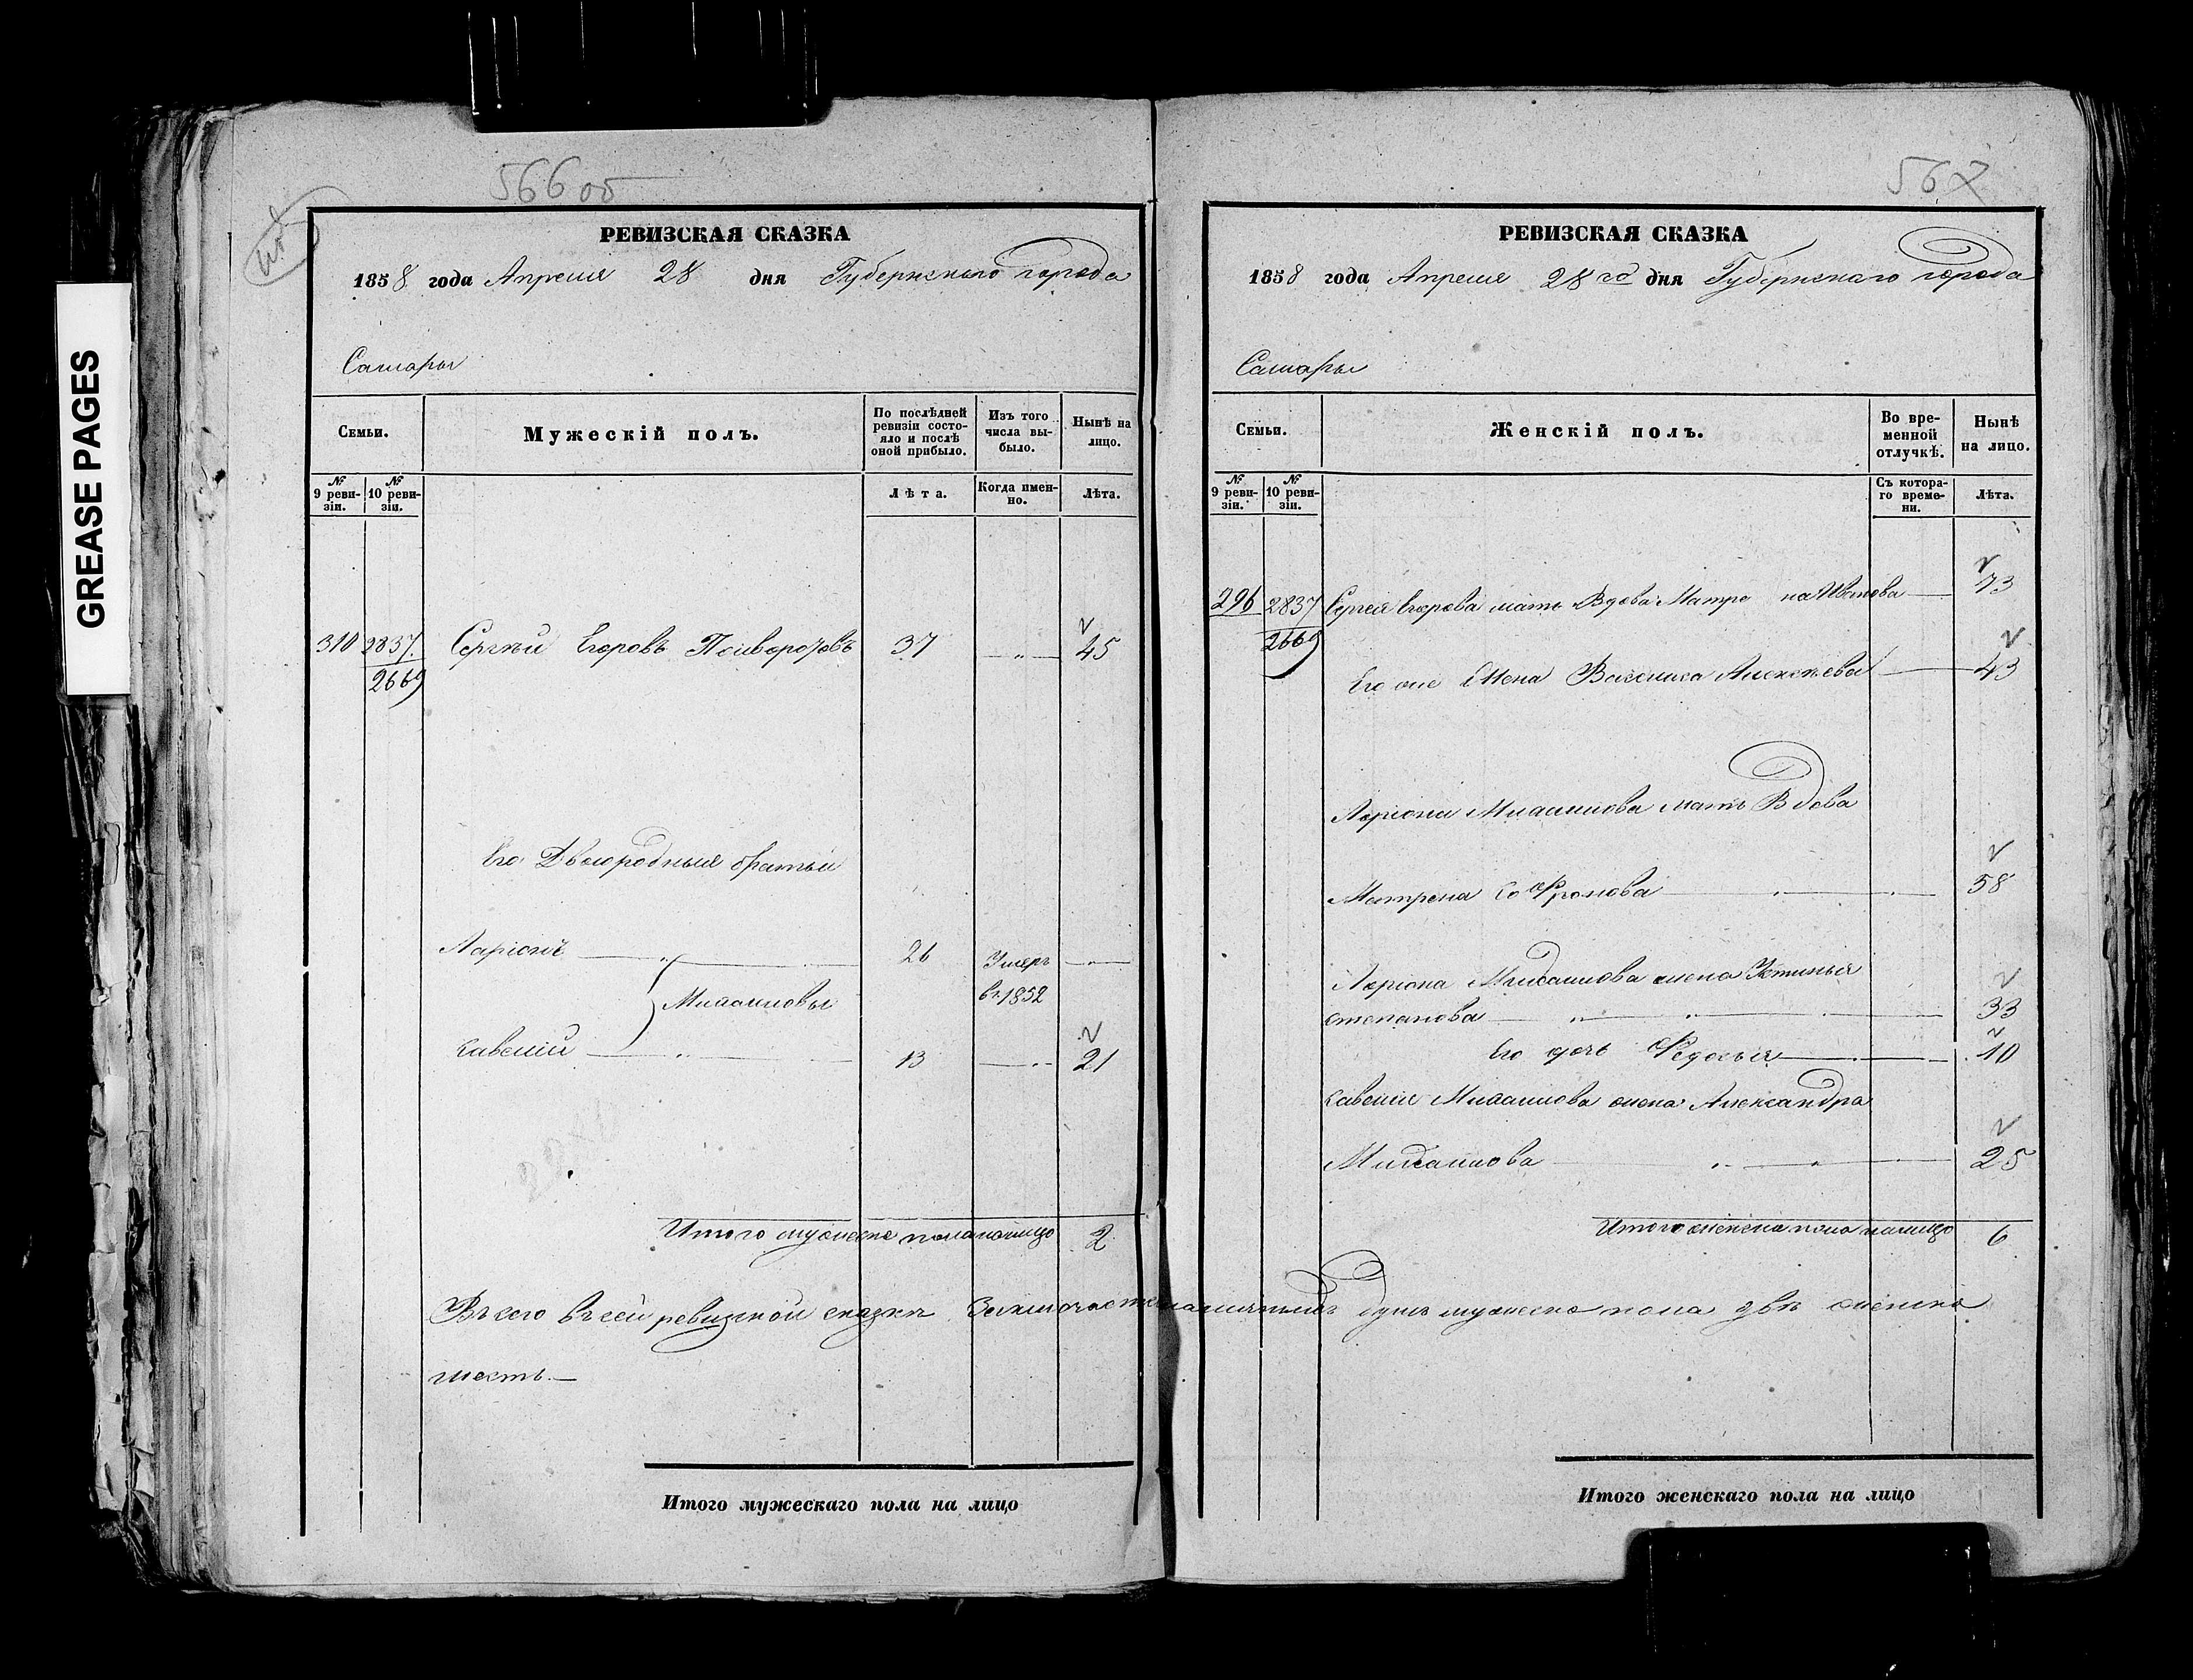 GREASE PAGES
566 об
РЕВИЗСКАЯ СКАЗКА
1858 года Апреля 28 дня Губернскаго города
Самары
Семьи.
Мужескій полъ.
По послѣдней ревизіи состояло и послѣ оной прибыло.
Изъ того числа выбыло.
Нынѣ на лицо.
№ 9 ревизіи.
№ 10 ревизіи.
Лѣта.
Когда именно.
Лѣта.
310 2837 Сергѣй Егоровъ 37 — „ — 45
2669
Его Двоюродные братьи
Ларіонъ — „ — 26 Умеръ — „ —
Михайловы въ 1852
Савелій — „ — 13 — „ 21
Итого мужеска пола налицо 2
567
РЕВИЗСКАЯ СКАЗКА
1858 года Апреля 28 го дня Губернскаго города
Самары
Семьи.
Женскій полъ.
Во временной отлучкѣ.
Нынѣ на лицо.
№ 9 ревизіи.
№ 10 ревизіи.
Съ котораго времени.
Лѣта.
296 2837 Сергея Егорова мать Вдова Матрена Иванова — 73
2669
Его же жена Василиса Алексѣева — 43
Ларіона Михайлова мать Вдова
Матрена Софронова — „ — 58
Ларіона Михайлова жена Устинья
Степанова — „ — „ — 33
Его дочь Федосья — 10
Савелія Михайлова жена Александра
Михайлова „ — „ — 25
Итого женска пола налицо 6
Всего въ сей ревизской сказкѣ Заключается налицо душъ мужеска пола двѣ женска
шесть. —
Итого мужескаго пола на лицо
Итого женскаго пола на лицо